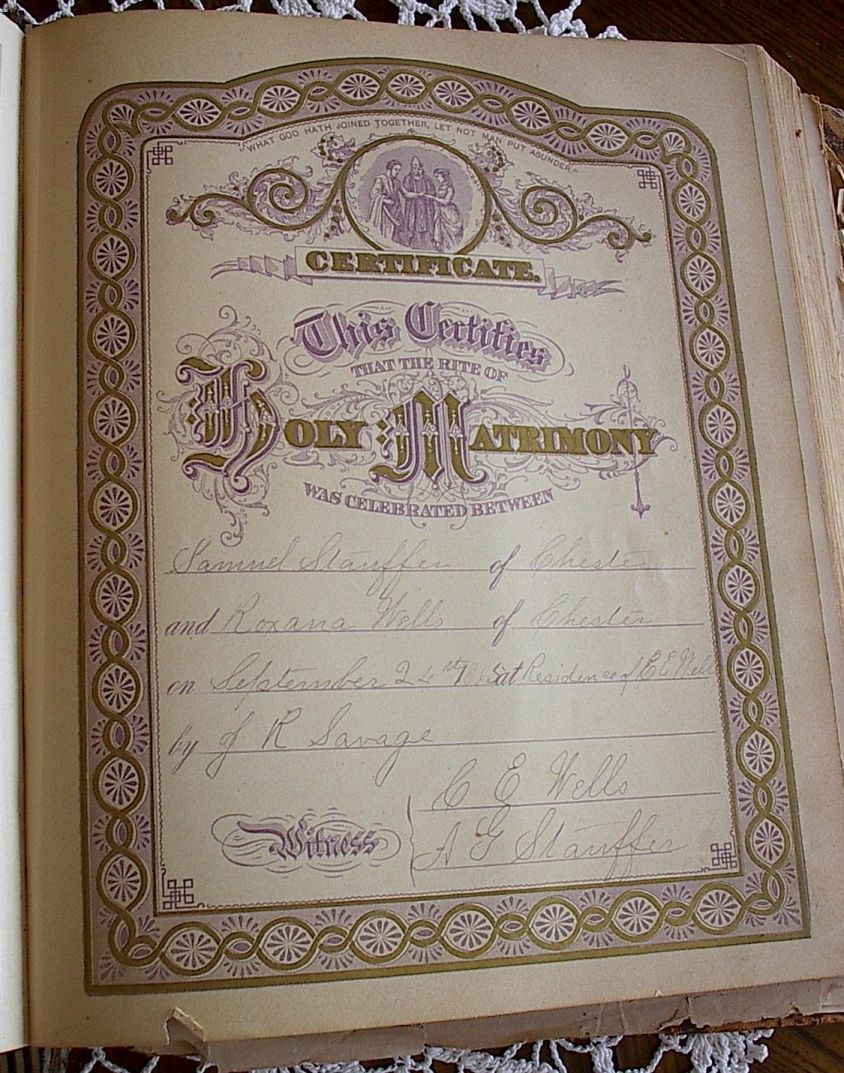 "WHAT GOD HATH JOINED TOGETHER, LET NOT MAN PUT ASUNDER."
CERTIFICATE.
This Certifies
THAT THE RITE OF
HOLY MATRIMONY
WAS CELEBRATED BETWEEN
Samuel Stauffer of Chester
and Roxana Wells of Chester
on September at Residence of C E Wells
by J R Savage
Witness
C E Wells
A G Stauffer